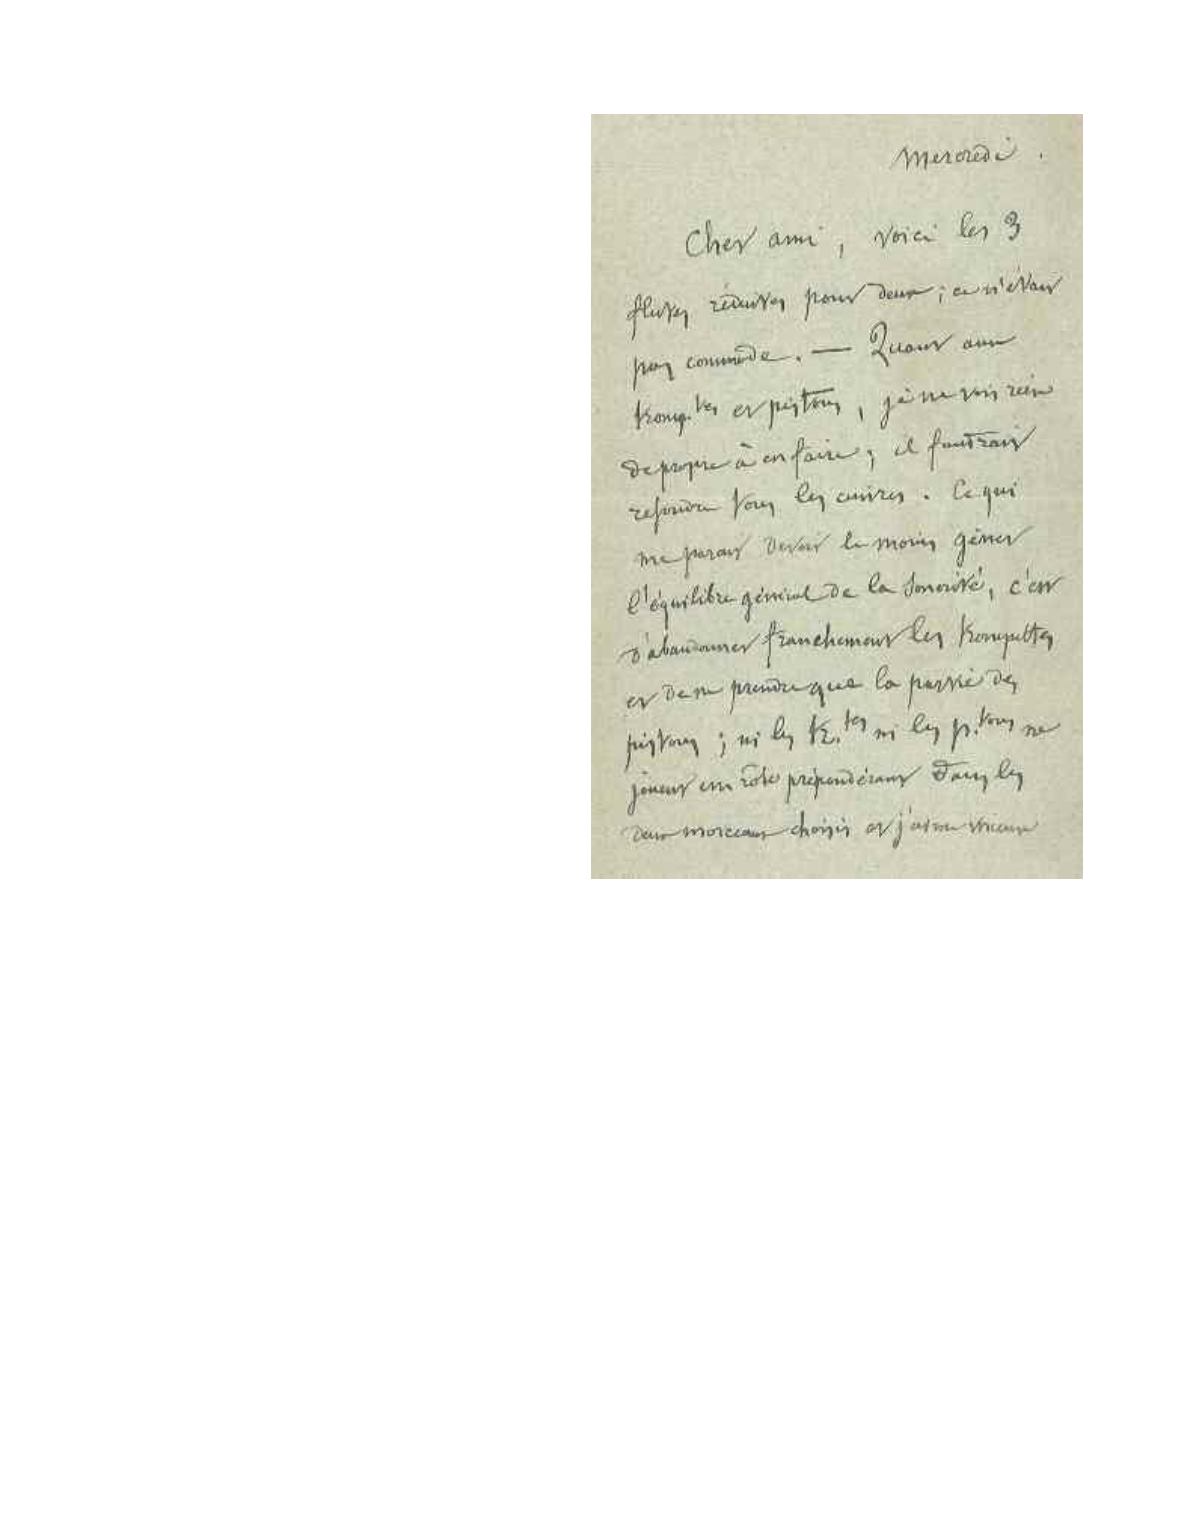 Mercredi.
Cher ami, voici les 3
flutes réduites pour deux ; ce n'était
pas commode. — Quant aux
tromp.tes et pistons, je ne vois rien
de propre à en faire ; il faudrait
refondre tous les cuivres. Ce qui
me parait devoir le moins gêner
l'équilibre général de la sonorité, c'est
d'abandonner franchement les trompettes
et de ne prendre que la partie des
pistons ; ni les tr.tes ni les p.tons ne
jouent un rôle prépondérant dans les
deux morceaux choisis et j'aime mieux